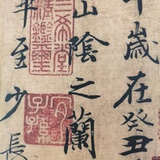 歲在癸丑
山陰之蘭
至少長
三希堂精鑑璽
宜子孫